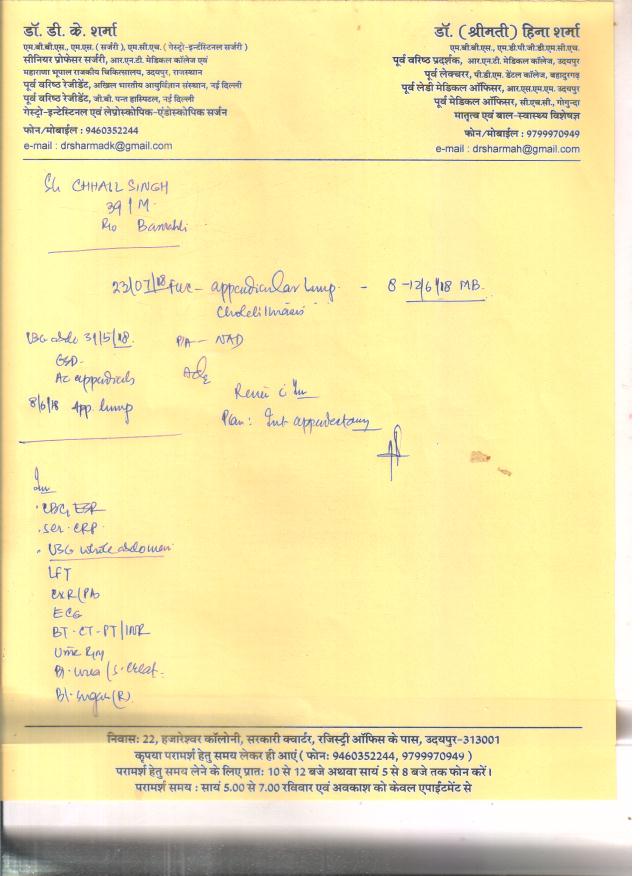 डॉ. डी. के. शर्मा
एम.बी.बी.एस., एम.एस. ( सर्जरी ), एम.सी.एच. ( गेस्ट्रो-इन्टेस्टिनल सर्जरी )
सीनियर प्रोफेसर सर्जरी, आर.एन.टी. मेडिकल कॉलेज एवं
महाराणा भूपाल राजकीय चिकित्सालय, उदयपुर, राजस्थान
पूर्व वरिष्ठ रेजीडेंट, अखिल भारतीय आयुर्विज्ञान संस्थान, नई दिल्ली
पूर्व वरिष्ठ रेजीडेंट, जी.बी. पन्त हास्पिटल, नई दिल्ली
गेस्ट्रो-इन्टेस्टिनल एवं लेप्रोस्कोपिक-एंडोस्कोपिक सर्जन
फोन/मोबाईल : 9460352244
e-mail : drsharmadk@gmail.com
डॉ. (श्रीमती) हिना शर्मा
एम.बी.बी.एस., एम.डी.पी.जी.डी.एम.सी.एच.
पूर्व वरिष्ठ प्रदर्शक, आर.एन.टी. मेडिकल कॉलेज, उदयपुर
पूर्व लेक्चरर, पी.डी.एम. डेंटल कॉलेज, बहादुरगढ़
पूर्व लेडी मेडिकल ऑफिसर, आर.एस.एम.एम. उदयपुर
पूर्व मेडिकल ऑफिसर, सी.एच.सी., गोगुन्दा
मातृत्व एवं बाल-स्वास्थ्य विशेषज्ञ
फोन/मोबाईल : 9799970949
e-mail : drsharmah@gmail.com
Sh CHHAIL SINGH
39 / M.
R/o
23/07/18 FUC - appendicular lump. - 8-12/6/18 MB.
Cholelithiasis
USG abdo 31/5/18. P/A - NAD
GSD.
Ac appendicitis Adv
8/6/18 App. lump Review c Inv
Plan: Int appendectomy
Inv
· CBC, ESR
· Ser. CRP.
· USG whole abdomen
LFT
CXR (PA)
ECG
BT. CT. PT/INR
Urine R/M
Bl. urea / S. Creat.
Bl. sugar (R)
निवास: 22, हजारेश्वर कॉलोनी, सरकारी क्वार्टर, रजिस्ट्री ऑफिस के पास, उदयपुर-313001
कृपया परामर्श हेतु समय लेकर ही आएं ( फोन: 9460352244, 9799970949 )
परामर्श हेतु समय लेने के लिए प्रातः 10 से 12 बजे अथवा सायं 5 से 8 बजे तक फोन करें।
परामर्श समय : सायं 5.00 से 7.00 रविवार एवं अवकाश को केवल एपाईंटमेंट से